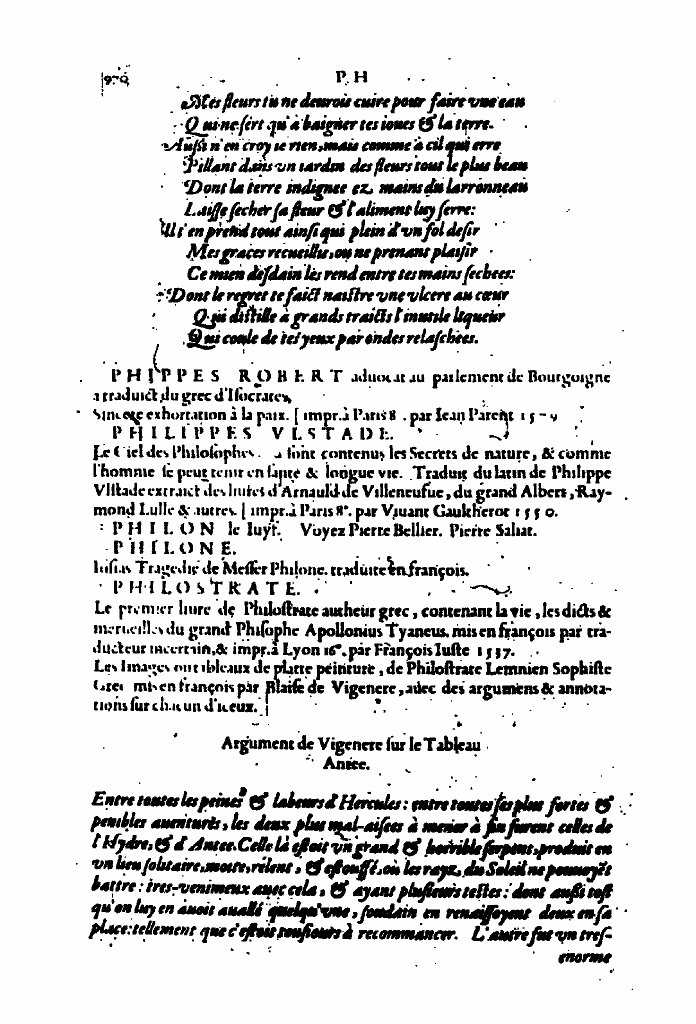 970 P H
Mes fleurs tu ne deurois cuire pour faire vne eau
Qui ne sert qu'à baigner tes ioues & la terre.
Außi n'en croy ie rien, mais comme à cil qui erre
Pillant dans vn iardin des fleurs tout le plus beau
Dont la terre indignee ez mains du larronneau
Laisse secher sa fleur & l'aliment luy serre:
Il t'en prend tout ainsi qui plein d'vn fol desir
Mes graces recueillis, ou ne prenant plaisir
Ce mien desdain les rend entre tes mains sechees:
Dont le regret te faict naistre vne vlcere au cœur
Qui distille à grands traicts l'inutile liqueur
Qui coule de tes yeux par ondes relaschees.
P H I P P E S R O B E R T aduocat au parlement de Bourgoigne
a traduict du grec d'Isocrates,
Sincere exhortation à la paix. [ impr. à Paris 8. par Iean Parent 15-9
P H I L I P P E S V L S T A D E.
Le Ciel des Philosophes. sont contenus les Secrets de nature, & comme
l'homme se peut tenir en santé & longue vie. Traduit du latin de Philippe
Vlstade extraict des liures d'Arnauld de Villeneufue, du grand Albert, Ray-
mond Lulle & autres. [ impr. à Paris 8°. par Viuant Gaulkherot 1550.
P H I L O N le Iuyf. Voyez Pierre Bellier. Pierre Saliat.
P H I L O N E.
Iosias Tragedie de Messer Philone. traduite en françois.
P H I L O S T R A T E.
Le premier liure de Philostrate autheur grec, contenant la vie, les dicts &
merueilles du grand Phisophe Apollonius Tyaneus. mis en françois par tra-
ducteur incertain, & impr. à Lyon 16°. par François Iuste 1537.
Les Images ou tableaux de platte peinture, de Philostrate Lemnien Sophiste
Grec mis en françois par Blaise de Vigenere, auec des argumens & annota-
tions sur chacun d'iceux. [
Argument de Vigenere sur le Tableau
Antee.
Entre toutes les peines & labeurs d'Hercules: entre toutes ses plus fortes &
penibles auentures, les deux plus mal-aisees à mener à fin furent celles de
l'Hydre, & d'Antee. Celle là estoit vn grand & horrible serpent, produit en
vn lieu solitaire, moite, relent, & estouffé, où les rayz du Soleil ne pouuoyẽt
battre: tres-venimeux auec cela, & ayant plusieurs testes: dont außi tost
qu'on luy en auoit auallé quelqu'vne, soudain en renaissoyent deux en sa
place: tellement que c'estoit tousiours à recommancer. L'autre fut vn tres-
enorme